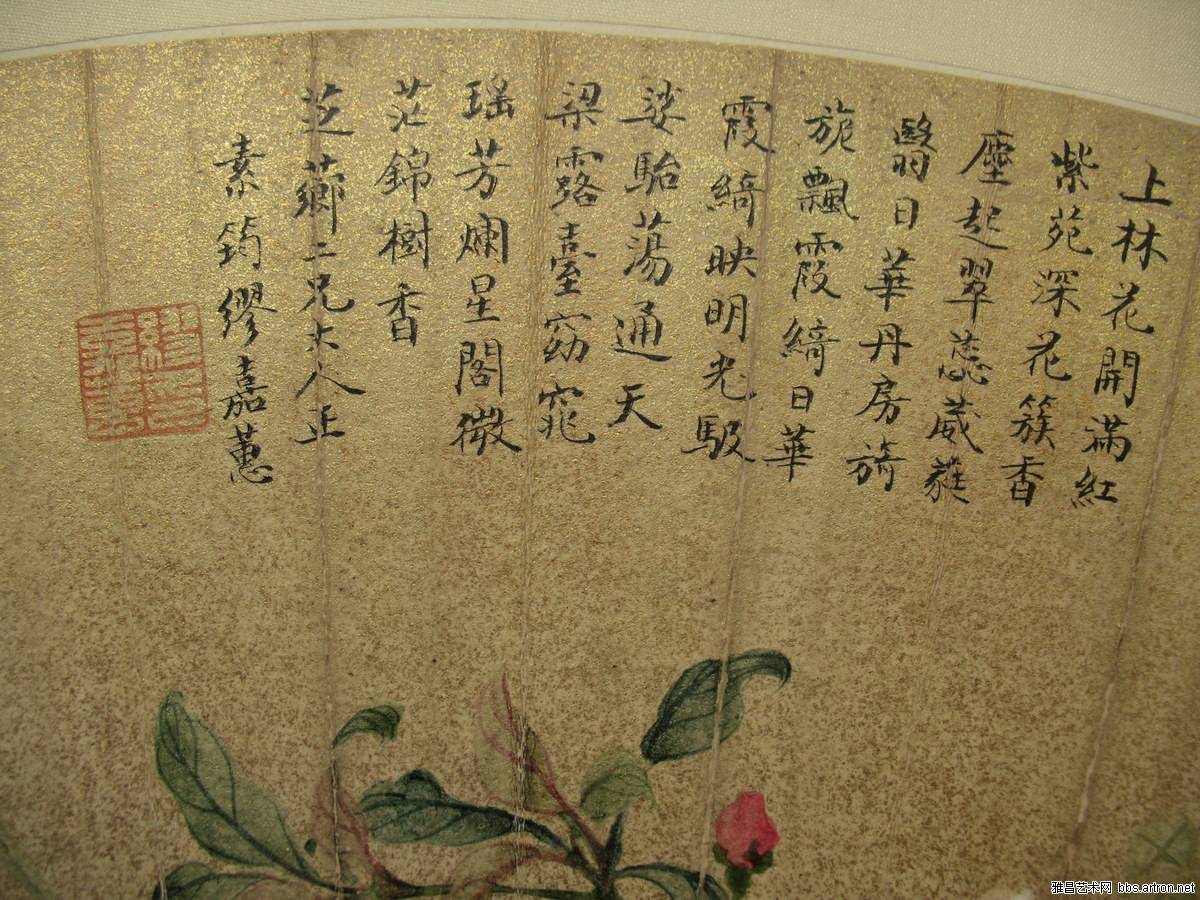 上林花開滿紅
紫苑深花簇香
塵起翠蕊葳蕤
翳日華丹房旖
旎飄霞綺日華
霞綺映明光馺
娑駘蕩通天
梁露臺窈窕
瑶芳爛星閣微
茫錦樹香
芝薌二兄大人正
素筠繆嘉蕙
雅昌艺术网 bbs.artron.net